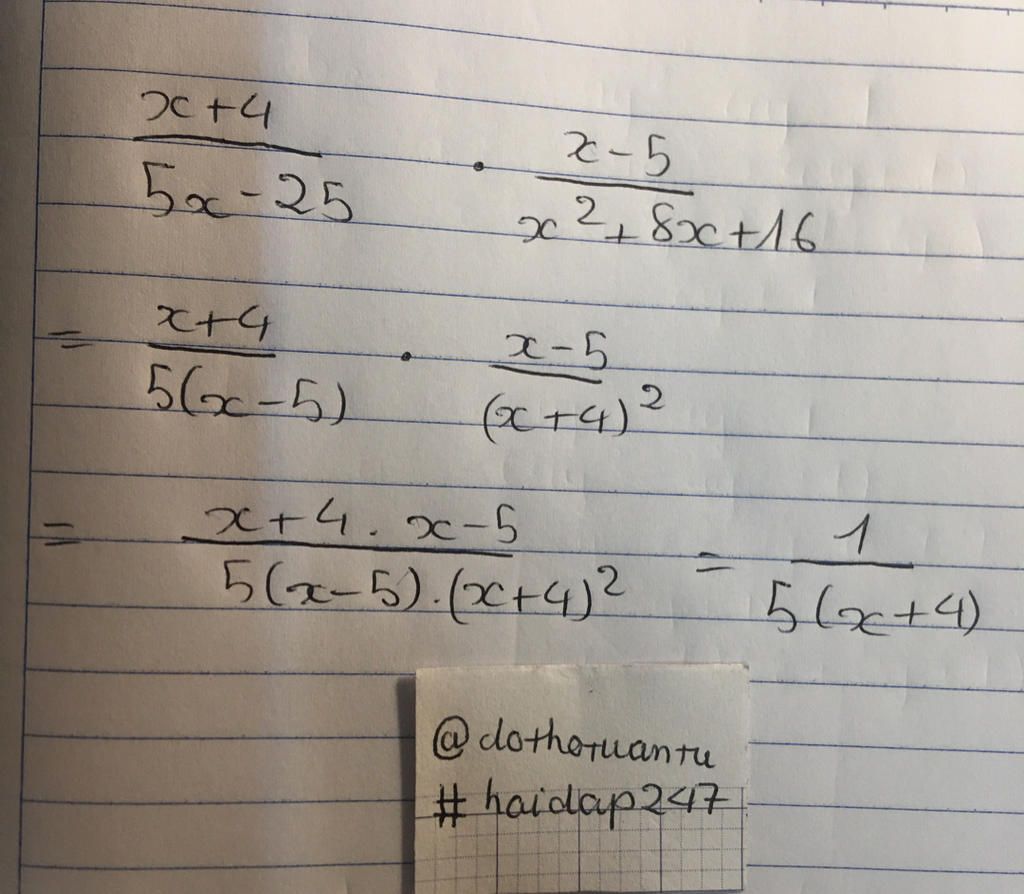 x+4 / 5x-25 . x-5 / x²+8x+16
= x+4 / 5(x-5) . x-5 / (x+4)²
= x+4 . x-5 / 5(x-5).(x+4)² = 1 / 5(x+4)
@dothotuantu
# haidap247